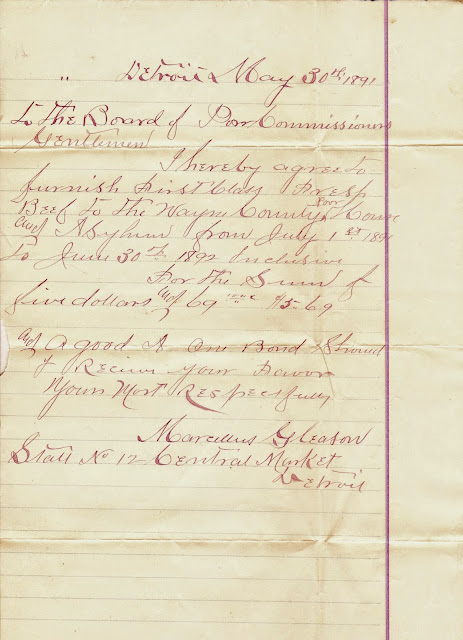 " Detroit May 30th 1891
To The Board of Poor Commissioners
Gentlemen
I hereby agree to
furnish First Class Fresh
Beef To The Wayne County Poor House
and Asylum from July 1st 1891
To June 30th 1892 Inclusive
For The Sum of
five dollars and 69 $5.69
And a good A One Bond Should
I Recieve your Favor
Yours Most Respectfully
Marcellus Gleason
Stall No 12 Central Market
Detroit